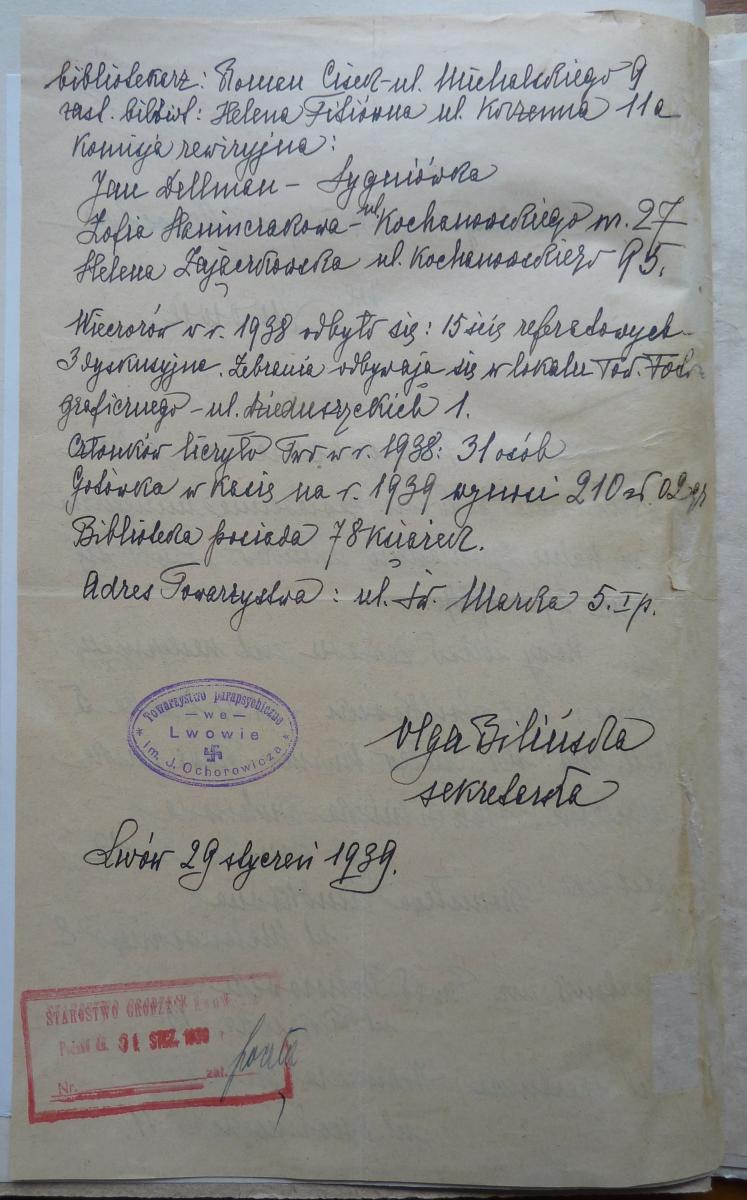 bibliotekarz: Roman Ciseł - ul. Michalskiego 9
zast. biblwt: Helena Fitiówna ul. Korzenna 11a
Komisja rewizyjna:
Jan Dellman - Sygniówka
Zofia - ul. Kochanowskiego nr. 27
Helena Zajączkowska ul. Kochanowskiego 95.
Wieczorów w r. 1938 odbyło się: 15 ście referatowych
3 dyskusyjne. Zebrania odbywają się w lokalu Tow. Foto-
graficznego - ul. Dzieduszyckich 1.
Członków liczyło Two w r. 1938: 31 osób
Gotówka w Kasie na r. 1939 wynosi 210 zł. 02 gr
Biblioteka posiada 78 książek.
Adres Towarzystwa: ul. Św. Marka 5. I p.
Towarzystwo parapsychiczne
- we -
Lwowie
im. J. Ochorowicza
Olga Bilińska
sekretarka
Lwów 29 styczeń 1939.
STAROSTWO GRODZKIE
31 STYCZ. 1939
Nr. zał.